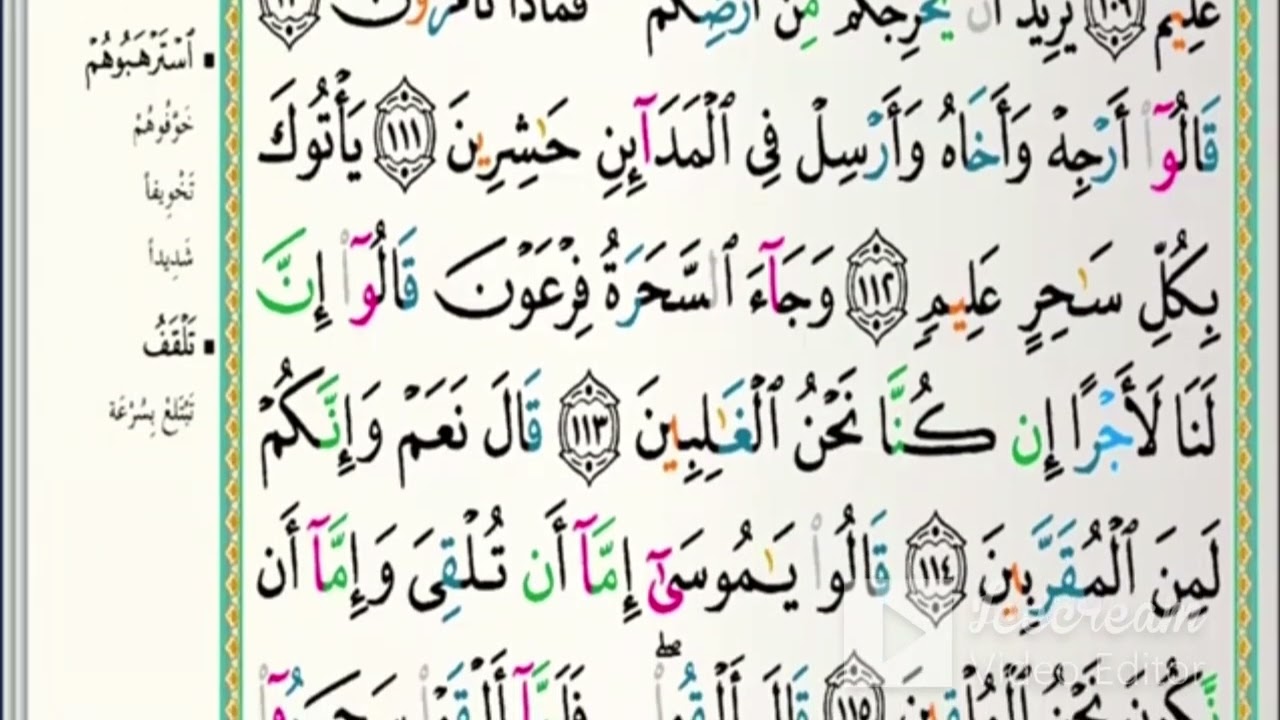 عَلِيمٌ ١٠٩ يُرِيدُ أَن يُخْرِجَكُم مِّنْ أَرْضِكُمْ فَمَاذَا تَأْمُرُونَ
قَالُوٓا۟ أَرْجِهْ وَأَخَاهُ وَأَرْسِلْ فِى ٱلْمَدَآئِنِ حَٰشِرِينَ ١١١ يَأْتُوكَ
بِكُلِّ سَٰحِرٍ عَلِيمٍ ١١٢ وَجَآءَ ٱلسَّحَرَةُ فِرْعَوْنَ قَالُوٓا۟ إِنَّ
لَنَا لَأَجْرًا إِن كُنَّا نَحْنُ ٱلْغَٰلِبِينَ ١١٣ قَالَ نَعَمْ وَإِنَّكُمْ
لَمِنَ ٱلْمُقَرَّبِينَ ١١٤ قَالُوا۟ يَٰمُوسَىٰٓ إِمَّآ أَن تُلْقِىَ وَإِمَّآ أَن
نَّكُونَ نَحْنُ ٱلْمُلْقِينَ ١١٥ قَالَ أَلْقُوا۟ۖ فَلَمَّآ أَلْقَوْا۟ سَحَرُوٓا۟
▪ ٱسْتَرْهَبُوهُمْ
خَوَّفُوهُمْ
تَخْوِيفاً
شَدِيداً
▪ تَلْقَفُ
تَبْتَلِعُ بِسُرْعَة
Video Editor